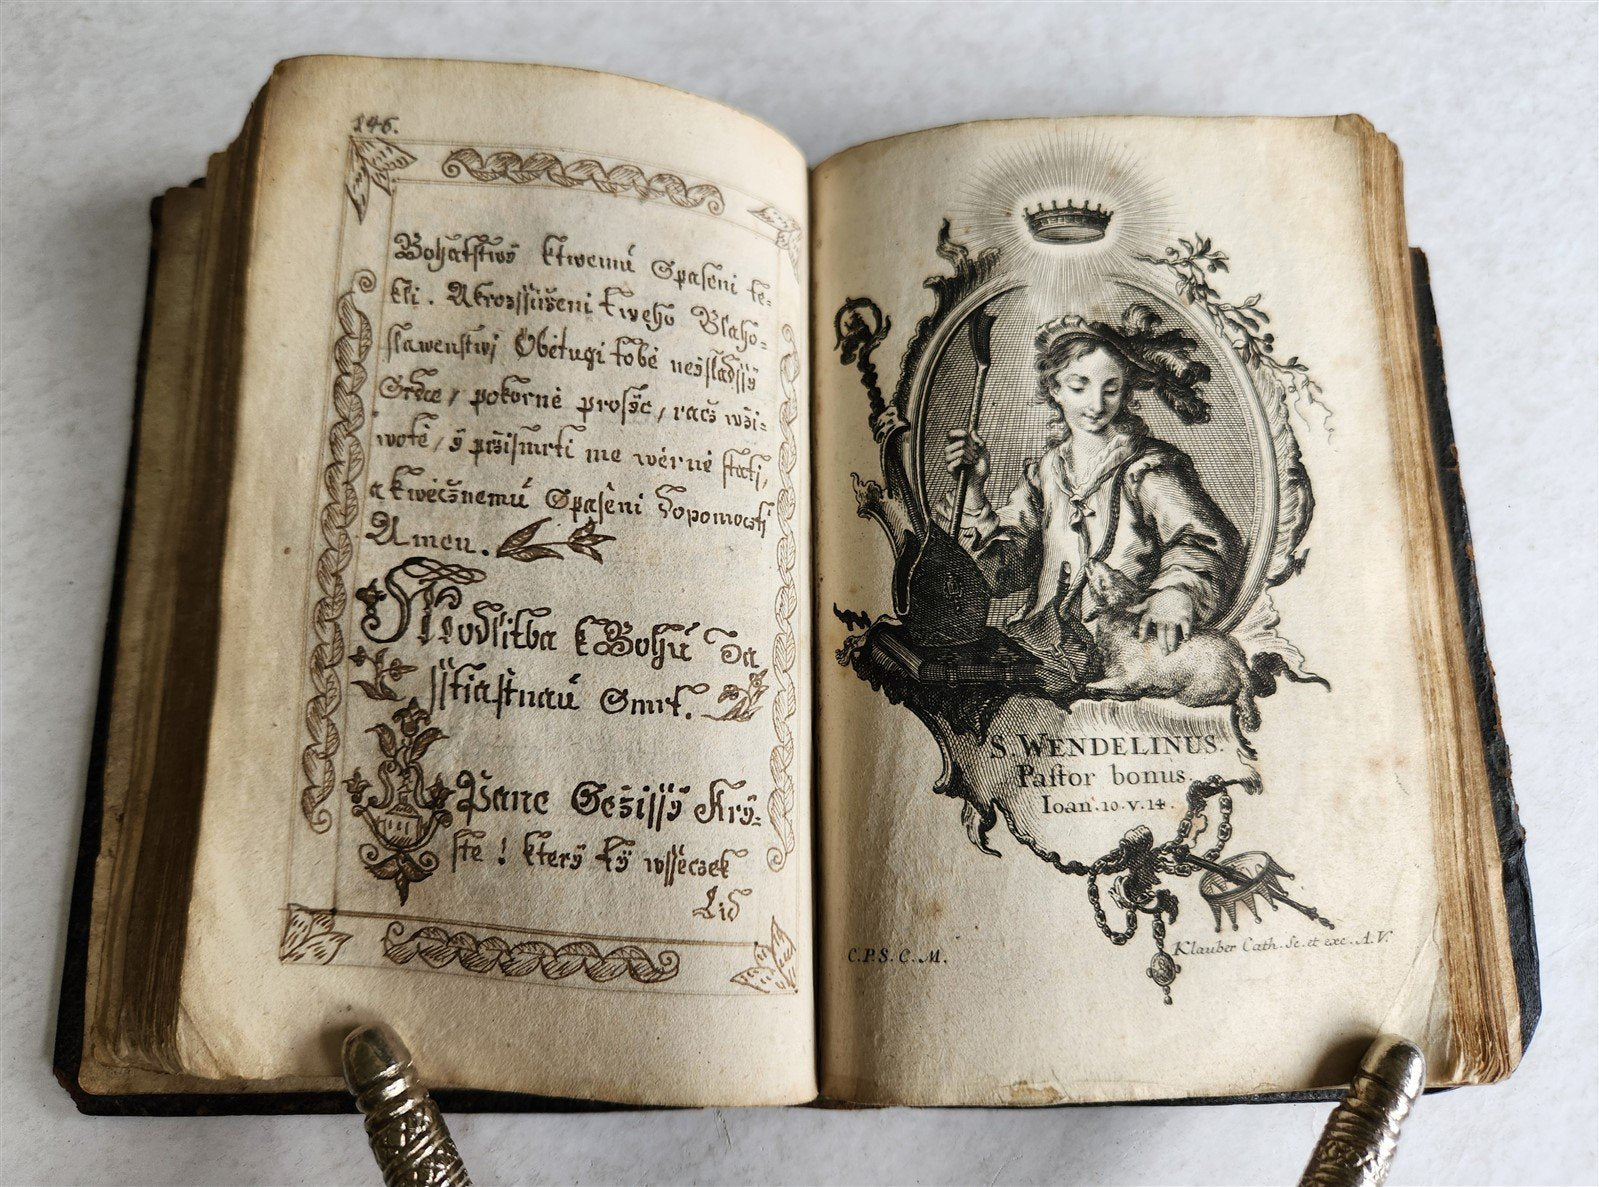 146.
Bohatstwÿ ktwemú Spaseni te-
kli. Akrozssÿřeni tweho Blaho-
slawenstwj Obětugi tobě neÿsladssÿ
Srdce / pokorně prosÿc / racž wži-
wotě / ÿ pržismrti me wěrně stati,
a kwěcžnemú Spaseni dopomocti
Amen.
Modlitba k Bohú Za
sstiastnaú Smrt.
Pane Gežissÿ Krÿ-
ste! kterÿ tÿ wssěczek
Lid
S. WENDELINUS.
Paſtor bonus.
Ioan. 10. v. 14.
C. P. S. C. M.
Klauber Cath. Sc. et exc. A. V.